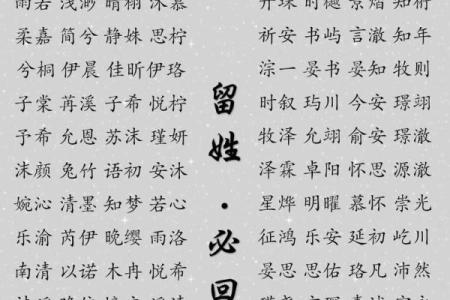 雨若 浅渺 晴栩 沐慕
柔嘉 简兮 静姝 思柠
兮桐 伊晨 佳昕 伊珞
子棠 苒溪 子希 悦柠
予希 允恩 苏沫 瑾妍
沫颜 兔竹 语初 安沐
婉沁 清墨 知梦 若心
乐渝 芮伊 晚缨 雨洛
南清 以诺 木冉 悦希
留姓·必回
祈安 书屿 言澈 知年
淙一 晏书 晏知 牧则
时叙 玙川 今安 璟翊
牧泽 允翊 俞安 璟澈
泽霖 卓阳 怀思 源澈
星烨 明曜 慕怀 崇光
征鸿 乐安 延初 屹川
晏思 思佑 珞凡 沛然